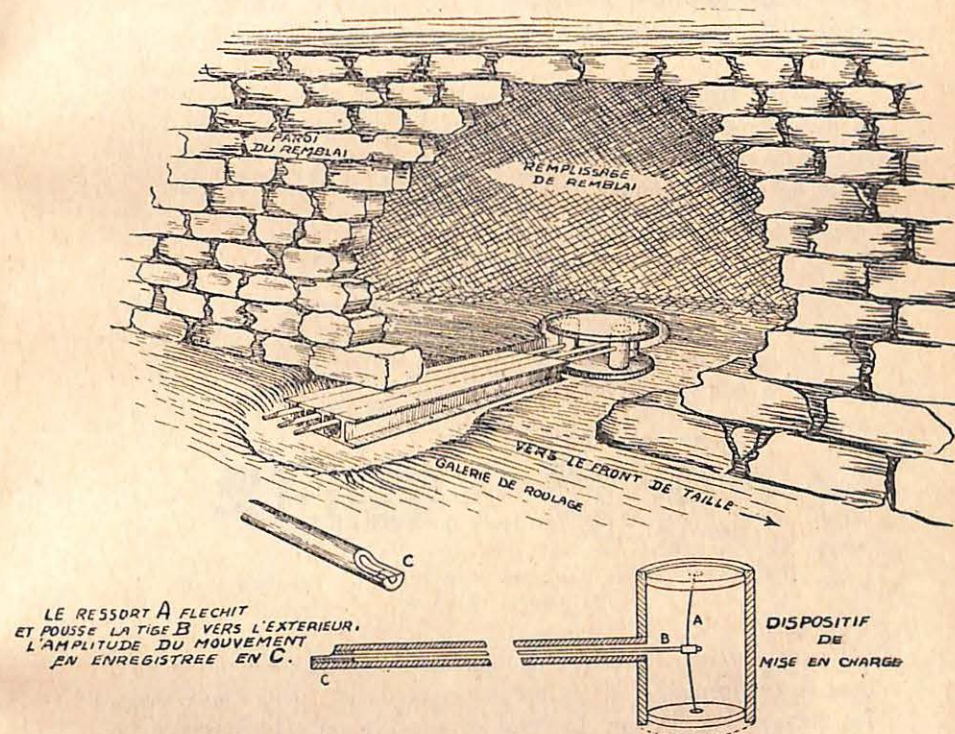 PAROI
DU REMBLAI
REMPLISSAGE
DE REMBLAI
VERS LE FRONT DE TAILLE
GALERIE DE ROULAGE
C
LE RESSORT A FLECHIT
ET POUSSE LA TIGE B VERS L'EXTERIEUR.
L'AMPLITUDE DU MOUVEMENT
EN ENREGISTREE EN C.
C
B
A
DISPOSITIF
DE
MISE EN CHARGE